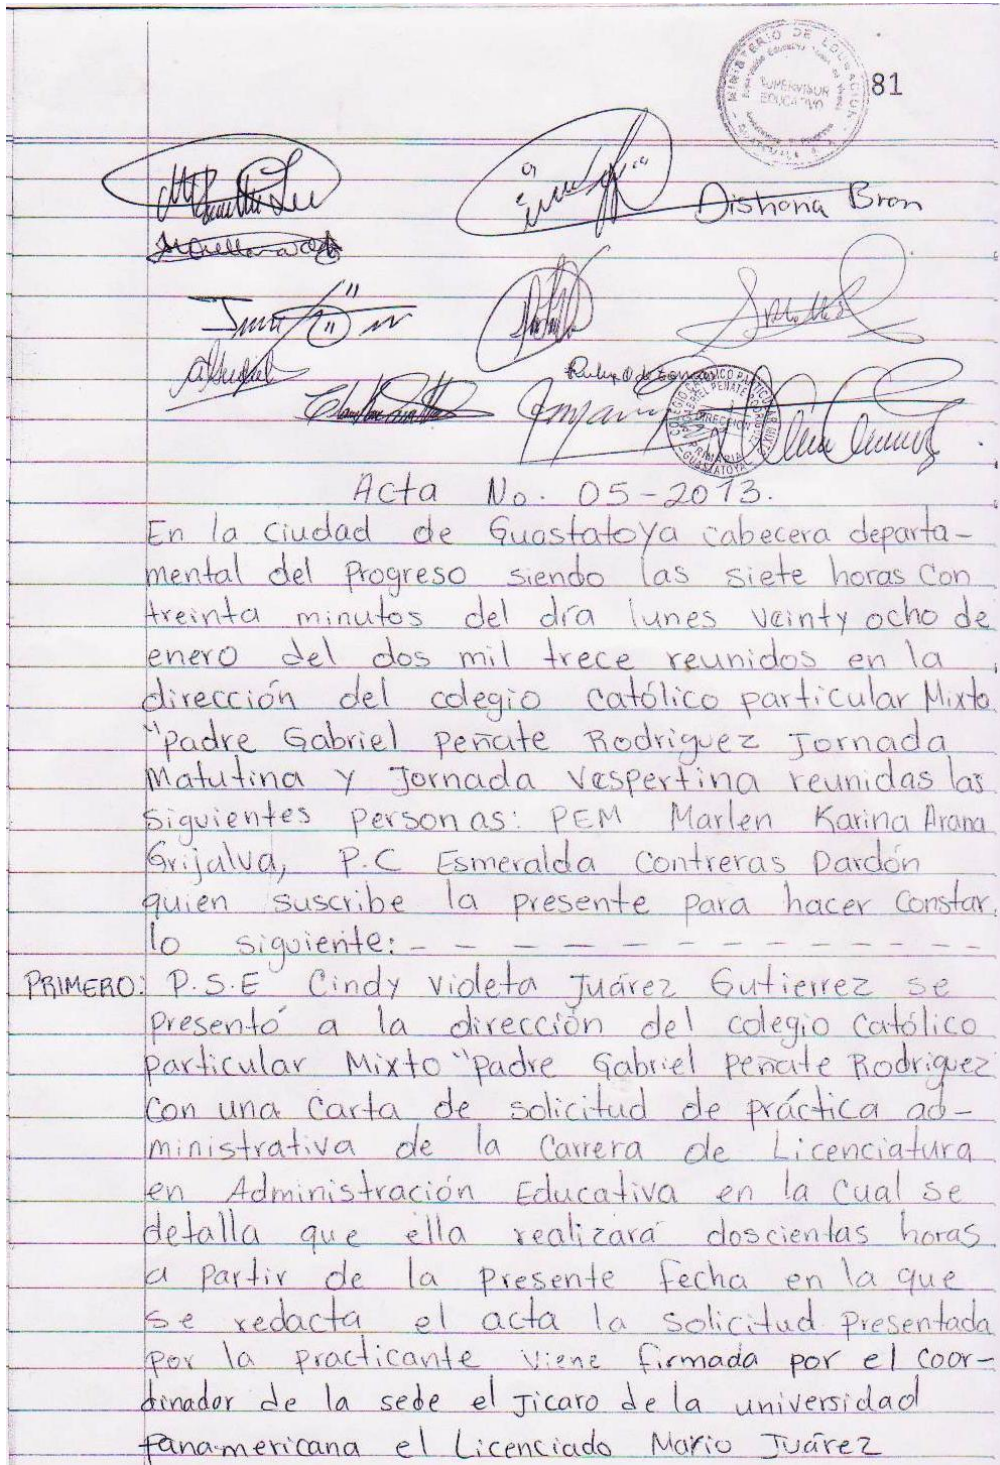 MINISTERIO DE EDUCACION
SUPERVISOR
EDUCATIVO
GUATEMALA
81
Dishana Bran
COLEGIO CATOLICO PARTICULAR MIXTO
DIRECCION
PRIMARIA
GUASTATOYA
Acta No. 05-2013.
En la ciudad de Guastatoya cabecera departa-
mental del Progreso siendo las siete horas con
treinta minutos del día lunes veinty ocho de
enero del dos mil trece reunidos en la
dirección del colegio católico particular Mixto
"padre Gabriel peñate Rodriguez Jornada
Matutina y Jornada Vespertina reunidas las
siguientes personas: PEM Marlen Karina Arana
Grijalva, P.C Esmeralda Contreras Dardón
quien suscribe la presente para hacer constar
lo siguiente: - - - - - - - - - - - -
PRIMERO: P.S.E Cindy Violeta Juárez Gutierrez se
presentó a la dirección del colegio católico
particular Mixto "padre Gabriel peñate Rodriguez
con una carta de solicitud de práctica ad-
ministrativa de la Carrera de Licenciatura
en Administración Educativa en la cual se
detalla que ella realizará doscientas horas
a partir de la presente fecha en la que
se redacta el acta la solicitud presentada
por la practicante viene firmada por el coor-
dinador de la sede el Jicaro de la universidad
panamericana el Licenciado Mario Juárez